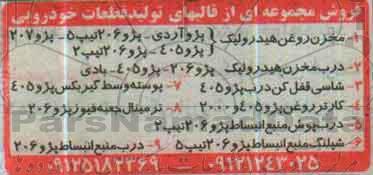 فروش مجموعه ای از قالبهای تولید قطعات خودرویی
۱- مخزن روغن هیدرولیک { پژوآردی - پژو۲۰۶تیپ۵ - پژو۲۰۷
پژو۴۰۵ - پژو۲۰۶تیپ۲
۲- درب مخزن هیدرولیک پژو۲۰۶- پژو۴۰۵- بادی
۳- شاسی قفل کن درب پژو۴۰۵ ۷- پوسته وسط گیربکس پژو۴۰۵
۴- کارتر روغن پژو۴۰۵ و ۲۰۰۰ ۸- ترمینال جعبه فیوز پژو۲۰۶
۵- درب پوش منبع انبساط پژو۲۰۶تیپ۲
۶- شیلنگ منبع انبساط پژو۲۰۶تیپ۵ ۹- درب منبع انبساط پژو۲۰۶
۰۹۱۲۱۲۴۳۰۲۵ ۰۹۱۲۵۱۸۲۳۶۹
ParsNamadData